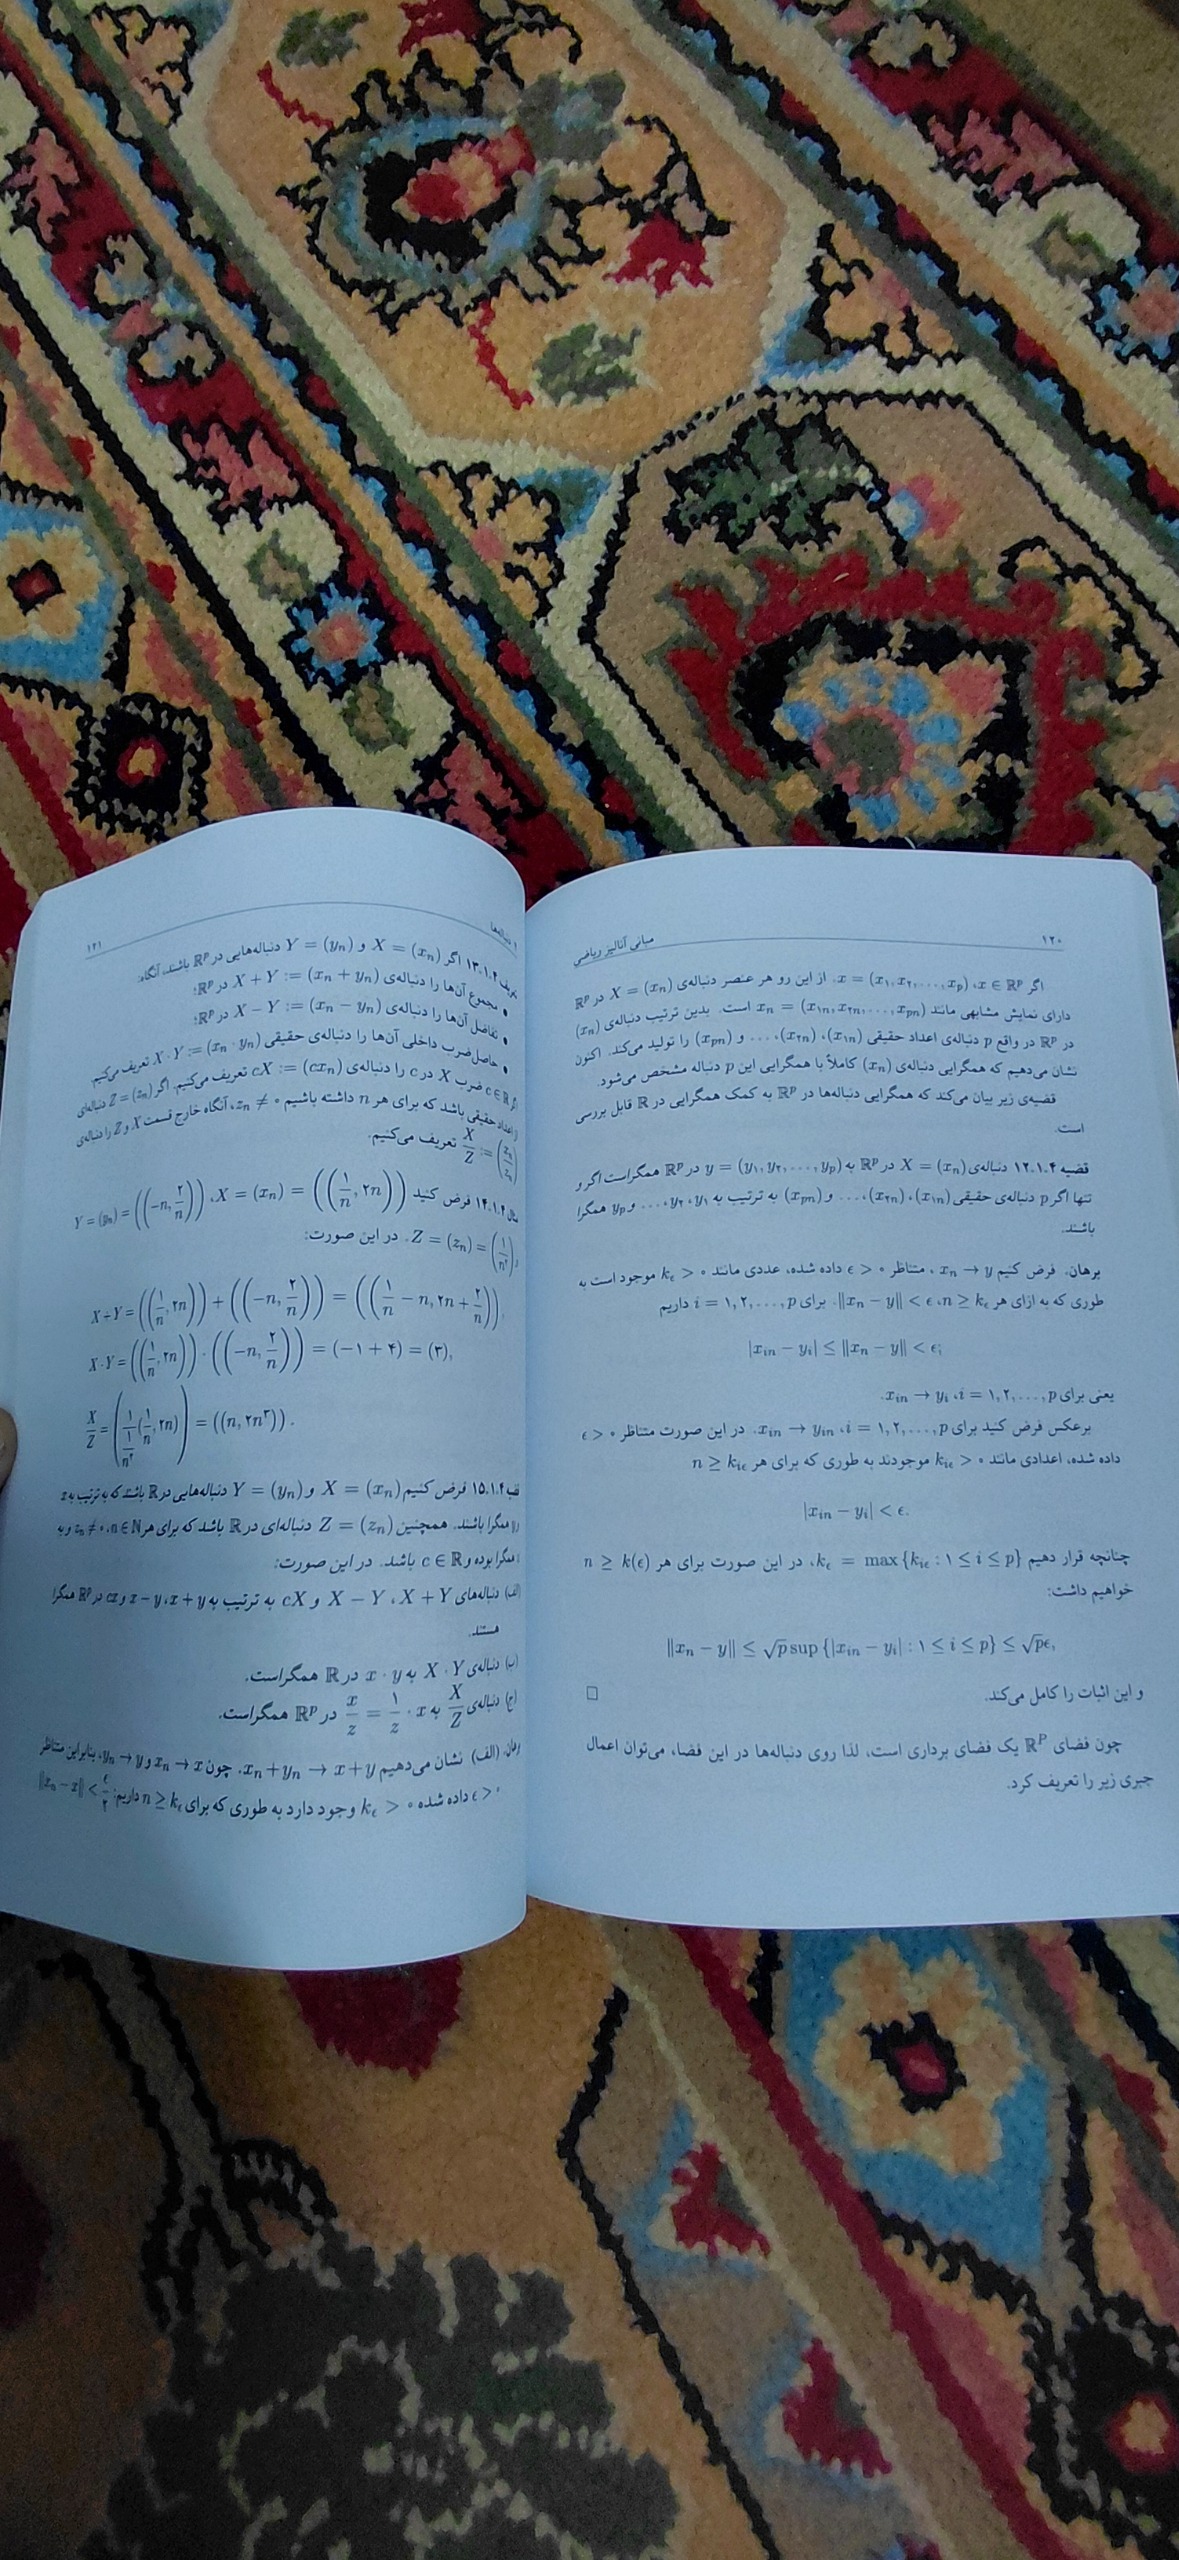 ۱۲۰
مبانی آنالیز ریاضی
اگر x ∈ ℝᵖ، x = (x₁, x₂, ..., xₚ). از این رو هر عنصر دنباله‌ی X = (xₙ) در ℝᵖ
دارای نمایش مشابهی مانند xₙ = (x₁ₙ, x₂ₙ, ..., xₚₙ) است. بدین ترتیب دنباله‌ی (xₙ)
در ℝᵖ در واقع p دنباله‌ی اعداد حقیقی (x₁ₙ)، (x₂ₙ)، ... و (xₚₙ) را تولید می‌کند. اکنون
نشان می‌دهیم که همگرایی دنباله‌ی (xₙ) کاملاً با همگرایی این p دنباله مشخص می‌شود.
قضیه‌ی زیر بیان می‌کند که همگرایی دنباله‌ها در ℝᵖ به کمک همگرایی در ℝ قابل بررسی
است.
قضیه ۱۲.۱.۴ دنباله‌ی X = (xₙ) در ℝᵖ به y = (y₁, y₂, ..., yₚ) در ℝᵖ همگراست اگر و
تنها اگر p دنباله‌ی حقیقی (x₁ₙ)، (x₂ₙ)، ... و (xₚₙ) به ترتیب به y₁، y₂، ... و yₚ همگرا
باشند.
برهان. فرض کنیم xₙ → y، متناظر ϵ > ۰ داده شده، عددی مانند k_ϵ > ۰ موجود است به
طوری که به ازای هر n ≥ k_ϵ، ‖xₙ − y‖ < ϵ. برای i = ۱, ۲, ..., p داریم
|xᵢₙ − yᵢ| ≤ ‖xₙ − y‖ < ϵ;
یعنی برای i = ۱, ۲, ..., p، xᵢₙ → yᵢ.
برعکس فرض کنید برای i = ۱, ۲, ..., p، xᵢₙ → yᵢₙ. در این صورت متناظر ϵ > ۰
داده شده، اعدادی مانند k_{iϵ} > ۰ موجودند به طوری که برای هر n ≥ k_{iϵ}
|xᵢₙ − yᵢ| < ϵ.
چنانچه قرار دهیم k_ϵ = max {k_{iϵ} : ۱ ≤ i ≤ p}، در این صورت برای هر n ≥ k(ϵ)
خواهیم داشت:
‖xₙ − y‖ ≤ √p sup {|xᵢₙ − yᵢ| : ۱ ≤ i ≤ p} ≤ √pϵ,
و این اثبات را کامل می‌کند. □
چون فضای ℝᵖ یک فضای برداری است، لذا روی دنباله‌ها در این فضا، می‌توان اعمال
جبری زیر را تعریف کرد.
دنباله‌ها
۱۲۱
۱۳.۱.۴ اگر X = (xₙ) و Y = (yₙ) دنباله‌هایی در ℝᵖ باشند، آنگاه:
• مجموع آن‌ها را دنباله‌ی X + Y := (xₙ + yₙ) در ℝᵖ؛
• تفاضل آن‌ها را دنباله‌ی X − Y := (xₙ − yₙ) در ℝᵖ؛
• حاصل‌ضرب داخلی آن‌ها را دنباله‌ی حقیقی X · Y := (xₙ · yₙ) تعریف می‌کنیم.
c ∈ ℝ ضرب X در c را دنباله‌ی cX := (cxₙ) تعریف می‌کنیم. اگر Z = (zₙ) دنباله‌ای
اعداد حقیقی باشد که برای هر n داشته باشیم zₙ ≠ ۰، آنگاه خارج قسمت X و Z را دنباله‌ی
X/Z := (xₙ/zₙ) تعریف می‌کنیم.
۱۴.۱.۴ فرض کنید X = (xₙ) = ((۱/n, ۲n))، Y = (yₙ) = ((−n, ۲/n))
Z = (zₙ) = (۱/n²). در این صورت:
X + Y = ((۱/n, ۲n)) + ((−n, ۲/n)) = ((۱/n − n, ۲n + ۲/n)),
X · Y = ((۱/n, ۲n)) · ((−n, ۲/n)) = (−۱ + ۴) = (۳),
X/Z = (۱/(۱/n²) (۱/n, ۲n)) = ((n, ۲n³)).
۱۵.۱.۴ فرض کنیم X = (xₙ) و Y = (yₙ) دنباله‌هایی در ℝ باشند که به ترتیب به x
همگرا باشند. همچنین Z = (zₙ) دنباله‌ای در ℝ باشد که برای هر n ∈ ℕ، zₙ ≠ ۰ و به
همگرا بوده و c ∈ ℝ باشد. در این صورت:
(الف) دنباله‌های X + Y، X − Y و cX به ترتیب به x + y، x − y و cx در ℝᵖ همگرا
هستند.
(ب) دنباله‌ی X · Y به x · y در ℝ همگراست.
(ج) دنباله‌ی X/Z به x/z = ۱/z · x در ℝᵖ همگراست.
(الف) نشان می‌دهیم xₙ + yₙ → x + y. چون xₙ → x و yₙ → y، بنابراین متناظر
ϵ > ۰ داده شده k_ϵ > ۰ وجود دارد به طوری که برای n ≥ k_ϵ داریم: ‖xₙ − x‖ < ϵ/۲